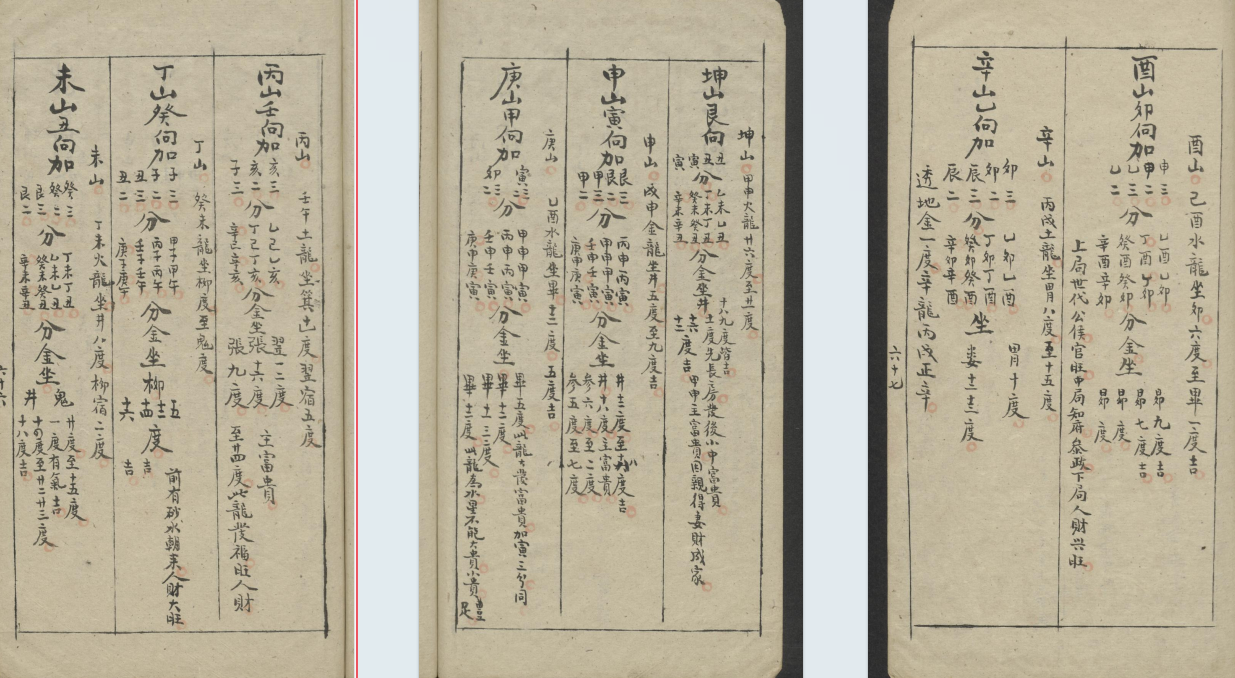 丙山 壬午土龍坐箕七度翌宿五度
丙山壬向加
亥三
亥二
子三
分
乙巳乙亥
丁巳丁亥
辛巳辛亥
分金坐
翌二二度
張六度
張九度
主富貴
至廿四度此龍發福旺人財
丁山 癸未龍坐柳度至鬼度
丁山癸向加
子三
子二
丑三
丑二
分
甲子甲午
丙子丙午
壬子壬午
庚子庚午
分金坐柳
五
十三
十四
十六
度
吉
吉
前有砂水朝來人財大旺
未山 丁未火龍坐井八度柳宿二二度
未山丑向加
癸三
癸二
艮三
艮二
分
丁未丁丑
乙未乙丑
癸未癸丑
辛未辛丑
分金坐
鬼
井
廿度至十五度
一度有氣吉
十四度至廿二廿三度
十八度吉
六十六
坤山 甲申火龍廿六度至廿度
坤山艮向
丑
丑
寅
寅
分
乙未乙丑
丁未丁丑
癸未癸丑
辛未辛丑
分金坐井
十八九度皆吉
十七度先長房發後小申富貴
十六
十三
度吉
甲申主富貴因親得妻財成家
申山 戊申金龍坐井五度至九度吉
申山寅向加
艮三
艮二
甲三
甲二
分
丙申丙寅
甲申甲寅
壬申壬寅
庚申庚寅
分金坐
井十八度主富貴
參六度至二度
參五度至七度
庚山 乙酉水龍坐畢十二度 五度吉
庚山甲向加
寅三
卯三
分
甲申甲寅
丙申丙寅
壬申壬寅
庚申庚寅
分金坐
畢五度此龍大發富貴加寅三分同
畢十二三度
畢十二度此龍為水星不能大貴小貴豐足
酉山 己酉水龍坐卯六度至畢一度吉
酉山卯向加
申三
甲二
乙三
乙二
分
乙酉乙卯
丁酉丁卯
癸酉癸卯
辛酉辛卯
分金坐
昴九度吉
昴七度吉
昴度
昴度
上局世代公侯官旺中局知府叅政下局人財兴旺
辛山 丙戌土龍坐胃八度至十五度
辛山乙向加
卯三
卯二
辰三
辰二
分
乙卯乙酉
丁卯丁酉
癸卯癸酉
辛卯辛酉
坐
胃十度
娄十三度
透地金一度辛龍丙戌正辛
六十七